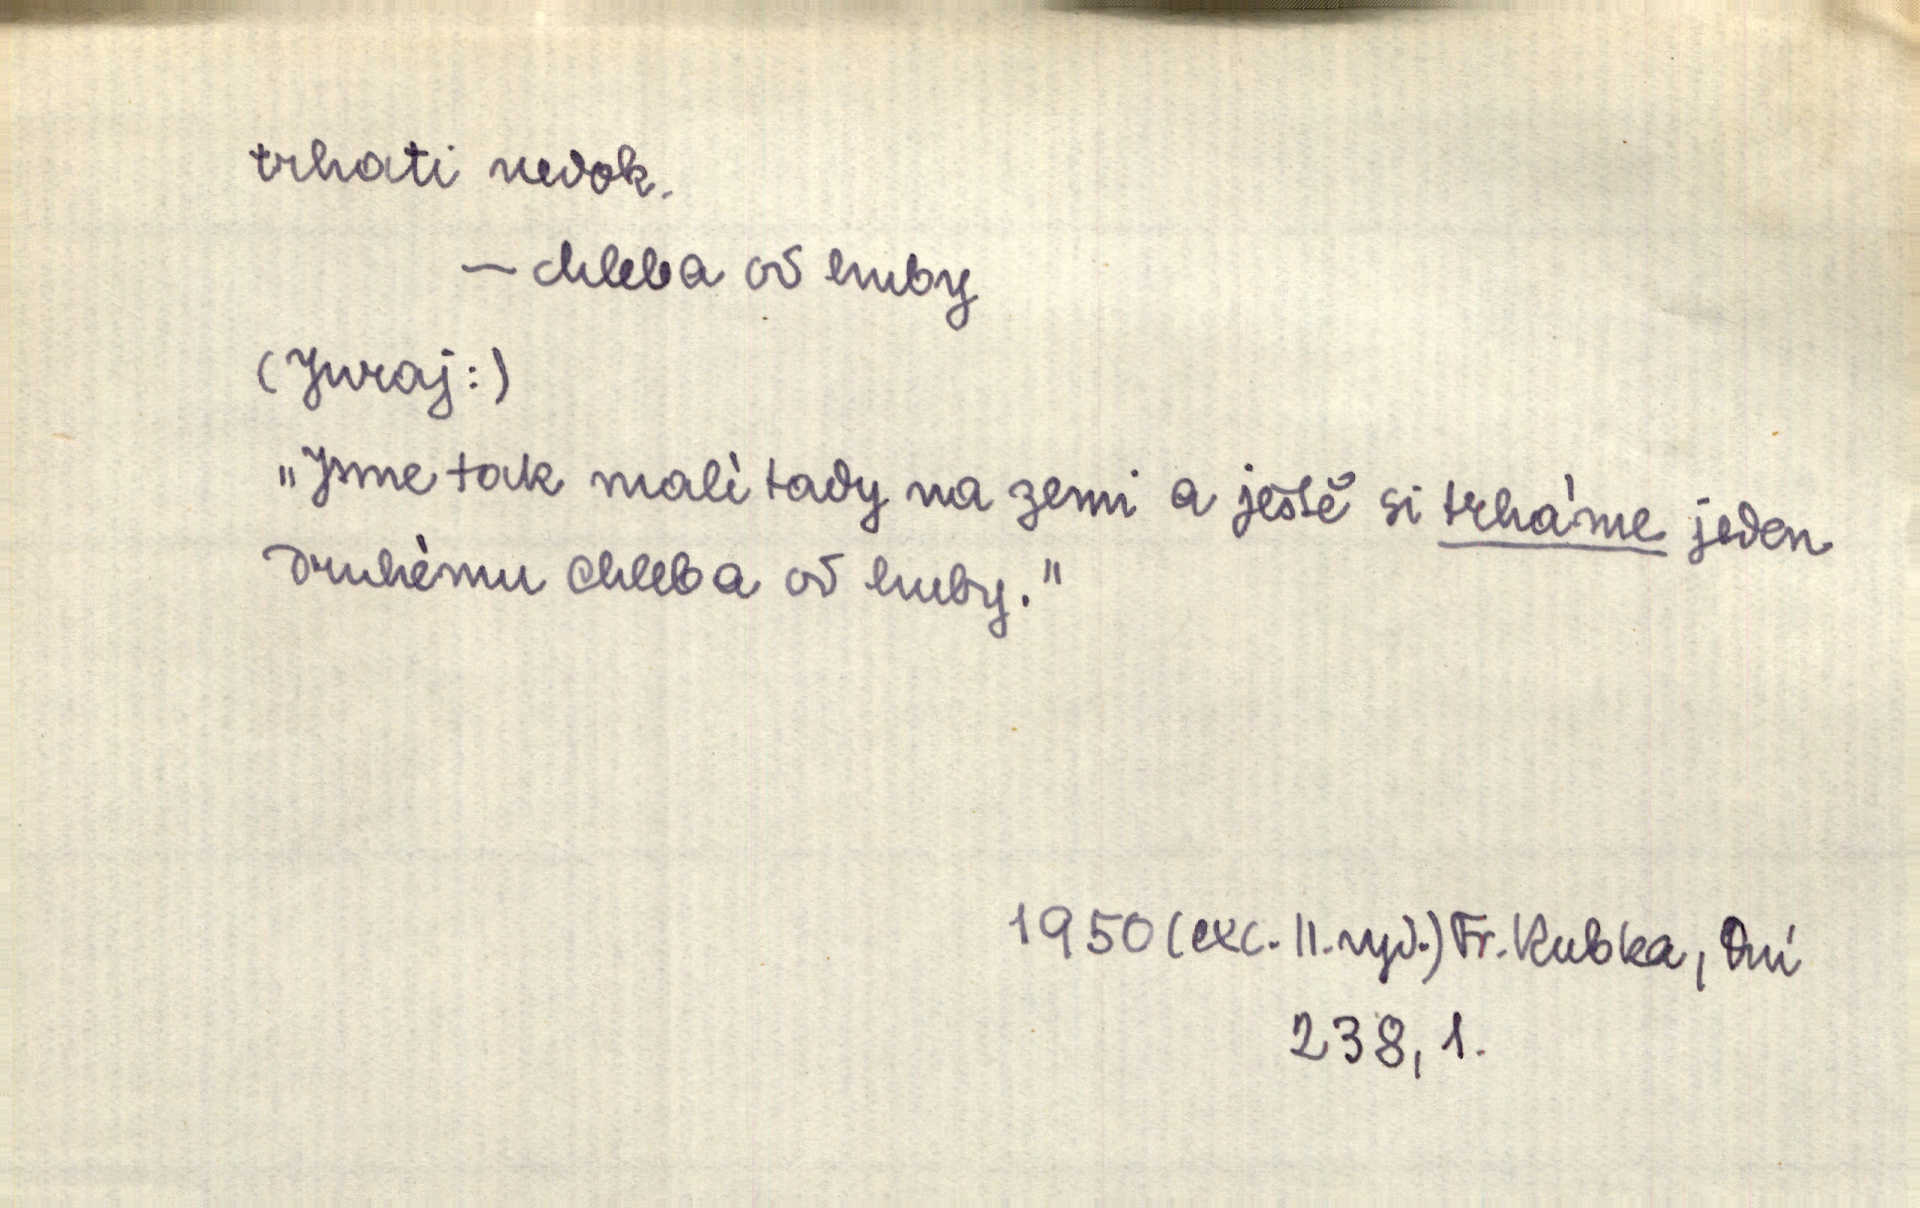 trhati nedok.
— chleba od huby
(Juraj:)
„Jsme tak malí tady na zemi a ještě si trháme jeden
druhému chleba od huby."
1950 (exc. II. vyd.) Fr. Kubka, Dni
238, 1.